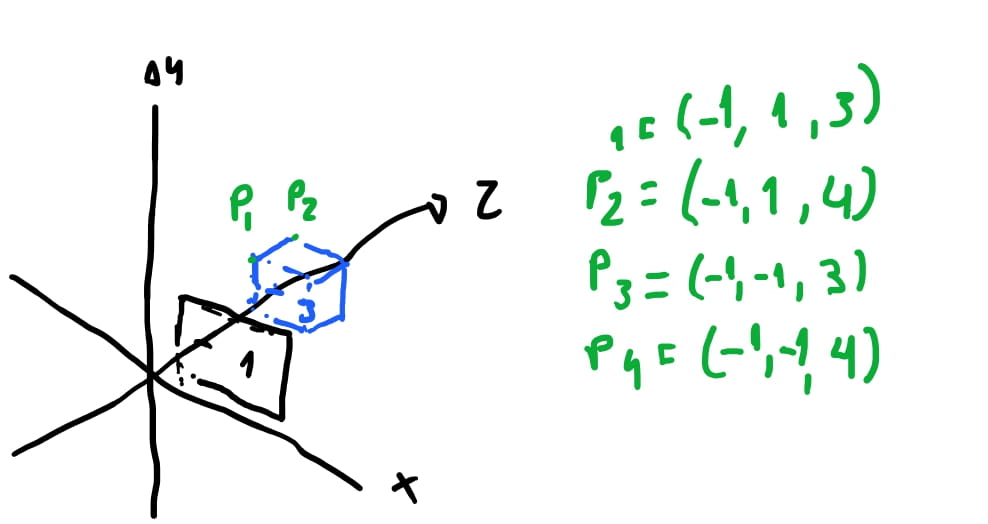 y
Z
P1 P2
3
1
x
1 = (-1, 1, 3)
P2 = (-1, 1, 4)
P3 = (-1, -1, 3)
P4 = (-1, -1, 4)